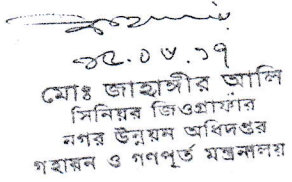 ১২.০৬.১৭
মোঃ জাহাঙ্গীর আলি
সিনিয়র জিওগ্রাফার
নগর উন্নয়ন অধিদপ্তর
গৃহায়ন ও গণপূর্ত মন্ত্রনালয়